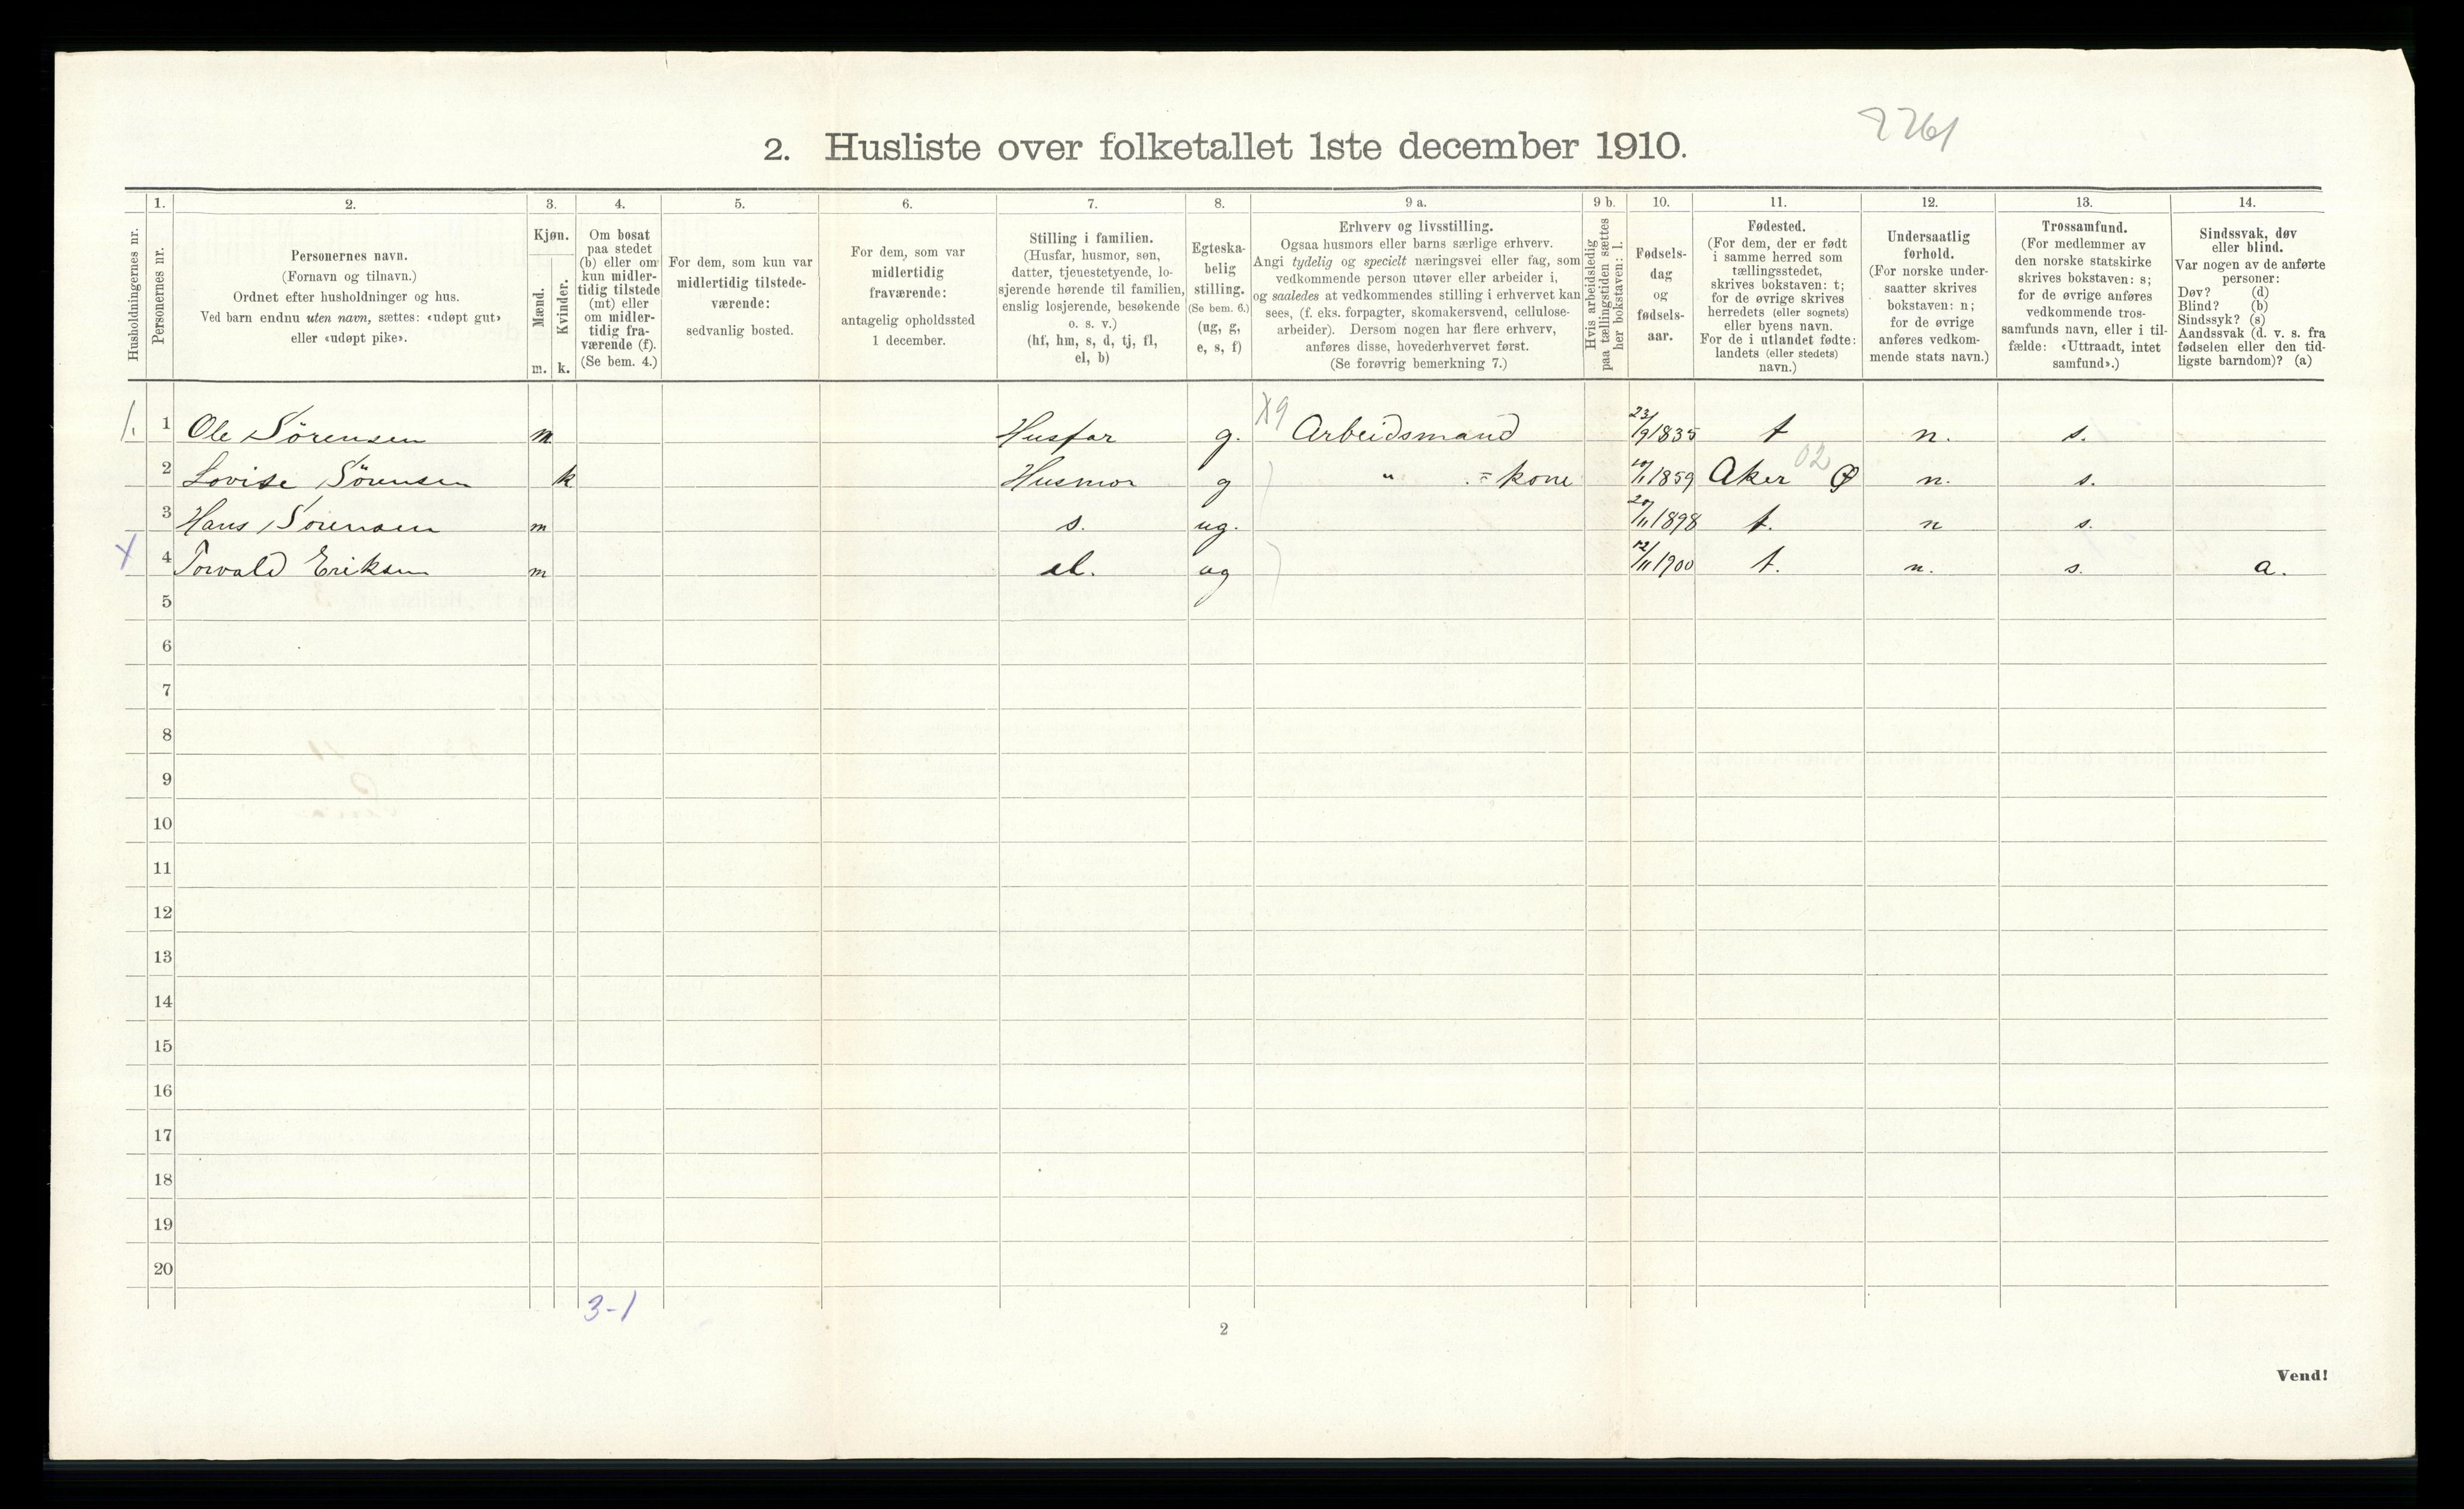 2261
2. Husliste over folketallet 1ste december 1910.
1. 2. 3. 4. 5. 6. 7. 8. 9 a. 9 b. 10. 11. 12. 13. 14.
Husholdningernes nr.
Personernes nr.
Personernes navn.
(Fornavn og tilnavn.)
Ordnet efter husholdninger og hus.
Ved barn endnu uten navn, sættes: «udøpt gut»
eller «udøpt pike».
Kjøn.
Mænd.
Kvinder.
m. k.
Om bosat
paa stedet
(b) eller om
kun midler-
tidig tilstede
(mt) eller
om midler-
tidig fra-
værende (f).
(Se bem. 4.)
For dem, som kun var
midlertidig tilstede-
værende:
sedvanlig bosted.
For dem, som var
midlertidig
fraværende:
antagelig opholdssted
1 december.
Stilling i familien.
(Husfar, husmor, søn,
datter, tjenestetyende, lo-
sjerende hørende til familien,
enslig losjerende, besøkende
o. s. v.)
(hf, hm, s, d, tj, fl,
el, b)
Egteska-
belig
stilling.
(Se bem. 6.)
(ug, g,
e, s, f)
Erhverv og livsstilling.
Ogsaa husmors eller barns særlige erhverv.
Angi tydelig og specielt næringsvei eller fag, som
vedkommende person utøver eller arbeider i,
og saaledes at vedkommendes stilling i erhvervet kan
sees, (f. eks. forpagter, skomakersvend, cellulose-
arbeider). Dersom nogen har flere erhverv,
anføres disse, hovederhvervet først.
(Se forøvrig bemerkning 7.)
Hvis arbeidsledig
paa tællingstiden sættes
her bokstaven: l.
Fødsels-
dag
og
fødsels-
aar.
Fødested.
(For dem, der er født
i samme herred som
tællingsstedet,
skrives bokstaven: t;
for de øvrige skrives
herredets (eller sognets)
eller byens navn.
For de i utlandet fødte:
landets (eller stedets)
navn.)
Undersaatlig
forhold.
(For norske under-
saatter skrives
bokstaven: n;
for de øvrige
anføres vedkom-
mende stats navn.)
Trossamfund.
(For medlemmer av
den norske statskirke
skrives bokstaven: s;
for de øvrige anføres
vedkommende tros-
samfunds navn, eller i til-
fælde: «Uttraadt, intet
samfund».)
Sindssvak, døv
eller blind.
Var nogen av de anførte
personer:
Døv? (d)
Blind? (b)
Sindssyk? (s)
Aandssvak (d. v. s. fra
fødselen eller den tid-
ligste barndom)? (a)
1. 1 Ole Sörensen m Husfar g. X9 Arbeidsmand 23/9 1835 t n. s.
2 Lovise Sörensen k Husmor g " = kone 10/1 1859 Aker 02 Ø n. s.
3 Hans Sorensen m s. ug. 20/11 1898 t. n s.
X 4 Torvald Eriksen m el. ug 12/11 1900 t. n. s. a.
5
6
7
8
9
10
11
12
13
14
15
16
17
18
19
20
3-1
2
Vend!